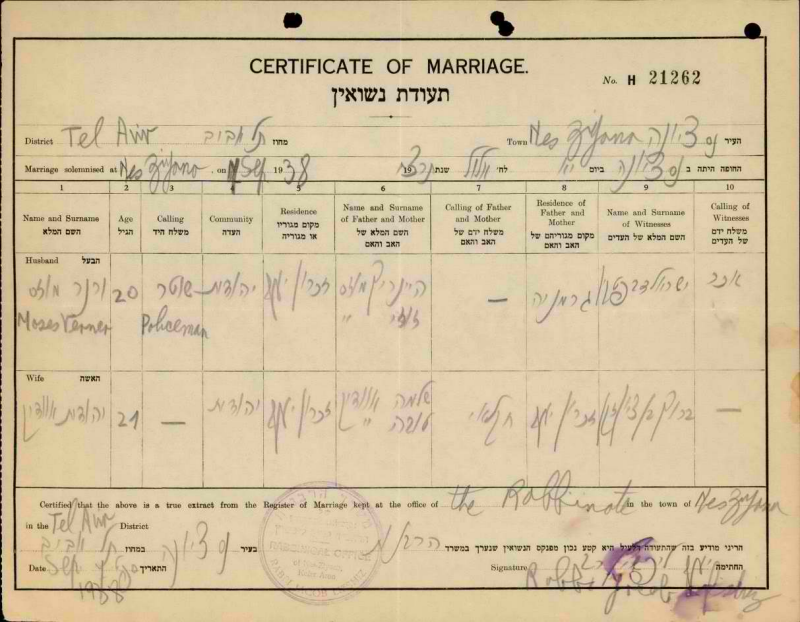 CERTIFICATE OF MARRIAGE.
No. H 21262
תעודת נשואין
District Tel Aviv תל אביב מחוז Town Nes Ziyona נס ציונה העיר
Marriage solemnised at Nes Ziyona, on Sep. 1938 19 שנת אלול לח' ביום החופה היתה ב נס ציונה
1 2 3 4 5 6 7 8 9 10
Name and Surname השם המלא
Age הגיל
Calling משלח היד
Community העדה
Residence מקום מגוריו או מגוריה
Name and Surname of Father and Mother השם המלא של האב והאם
Calling of Father and Mother משלח ידם של האב והאם
Residence of Father and Mother מקום מגוריהם של האב והאם
Name and Surname of Witnesses השם המלא של העדים
Calling of Witnesses משלח ידם של העדים
Husband הבעל
ורנר מוזס 20 שוטר יהודית זכרון יעקב היינריך מוזס — גרמניה אכר
Moses Verner Policeman
Wife האשה
יהודית 21 — יהודית זכרון יעקב שלמה חקלאי זכרון יעקב —
טובה "
Certified that the above is a true extract from the Register of Marriage kept at the office of the Rabbinate in the town of Nes Ziyona
in the Tel Aviv District
הריני מודיע בזה שהתעודה דלעיל היא קטע נכון מפנקס הנשואין שנערך במשרד הרבנות בעיר נס ציונה במחוז תל אביב
Date Sep. 1938 התאריך Signature החתימה
Rabbi Jacob
RABBINICAL OFFICE